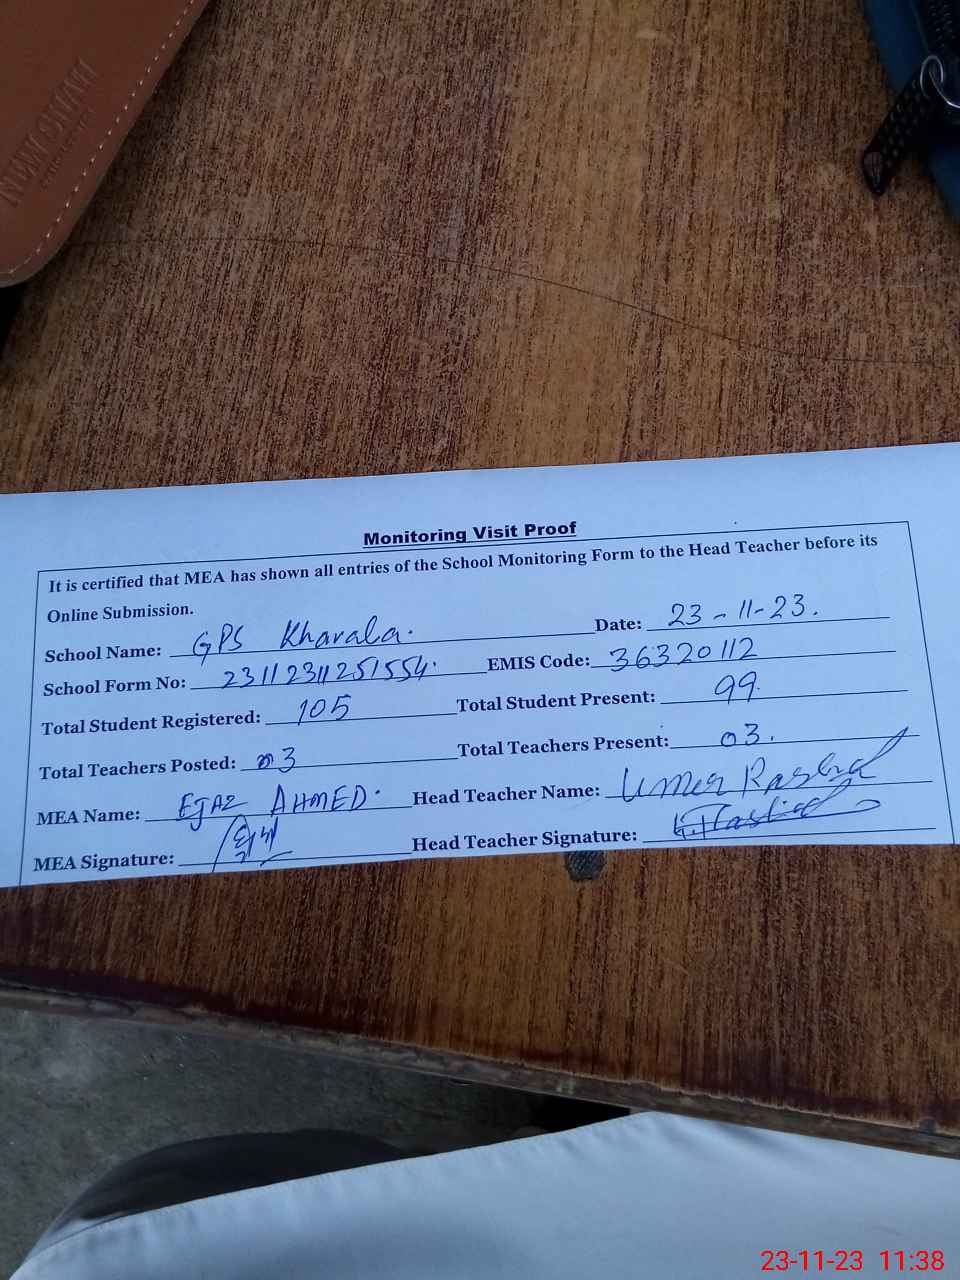 Monitoring Visit Proof
It is certified that MEA has shown all entries of the School Monitoring Form to the Head Teacher before its
Online Submission.
School Name: GPS Kharala. Date: 23-11-23.
School Form No: 23112311251554. EMIS Code: 36320112
Total Student Registered: 105 Total Student Present: 99.
Total Teachers Posted: 03 Total Teachers Present: 03.
MEA Name: EJAZ AHMED. Head Teacher Name: Umer Rashid
MEA Signature: Head Teacher Signature:
23-11-23 11:38